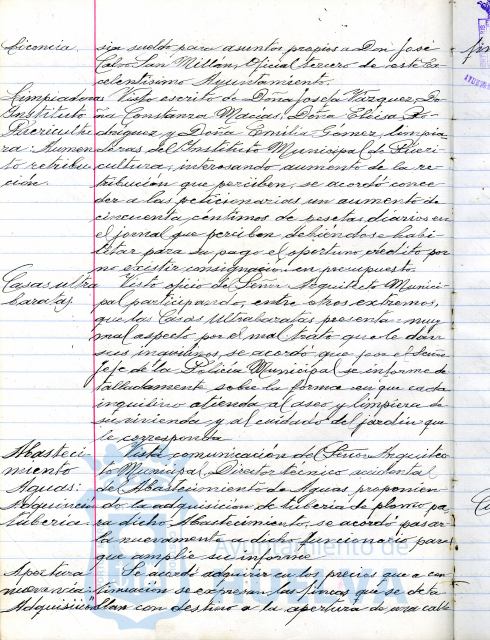 Licencia. sin sueldo para asuntos propios a Don José
Calvo San Millán, Oficial tercero de este Ex-
celentísimo Ayuntamiento.
Limpiadoras Visto escrito de Doña Josefa Vazquez, Do-
Instituto ña Constanza Macias, Doña Elisa Ro-
Puericulto- driguez y Doña Emilia Gómez, limpia-
ra: Aumen- doras del Instituto Municipal de Pueri-
to retribu- cultura, interesando aumento de la re-
ción. tribución que perciben, se acordó conce-
der a las peticionarias un aumento de
cincuenta céntimos de pesetas diarios en
el jornal que perciben debiéndose habi-
litar para su pago el oportuno crédito por
no existir consignación en presupuesto.
Casas ultra Visto oficio del Señor Arquitecto Munici-
baratas pal participando, entre otros extremos,
que las Casas Ultrabaratas presentan muy
mal aspecto por el mal trato que le dan
sus inquilinos, se acordó que por el Señor
Jefe de la Policía Municipal se informe de-
talladamente sobre la forma en que cada
inquilino atienda al aseo y limpieza de
su vivienda y al cuidado del jardin que
le corresponda
Abasteci- Vista comunicación del Señor Arquitec-
miento to Municipal, Director técnico accidental
Aguas: del Abastecimiento de Aguas proponien-
Adquisición do la adquisición de tuberia de plomo pa-
tuberia ra dicho Abastecimiento, se acordó pasar-
la nuevamente a dicho funcionario para
que amplie su informe
Apertura Se acordó adquirir en los precios que a con-
nueva via: tinuación se expresan las fincas que se deta-
Adquisición llan con destino a la apertura de una calle
Ayuntamiento de
HUELVA